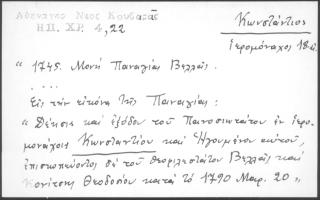 Αθενατος Νεος Κουβαρᾶς
ΗΠ. ΧΡ. 4, 22
Κωνστάντιος
ἱερομόναχος 18 αἰ.
" 1745. Μονή Παναγίας Βελλᾶς.
. . . .
Εἰς τήν εἰκόνα τῆς Παναγίας:
" Δέησις καί ἐξόδου τοῦ Πανοσιωτάτου ἐν ἱερο-
μονάχοις Κωνσταντίου καί Ἡγουμένου αὐτοῦ,
ἐπισκοπεύοντος δέ τοῦ θεοφιλεστάτου Βελλᾶς καί
Κονίτσης Θεοδοσίου κατά τό 1790 Μαρ. 20 "